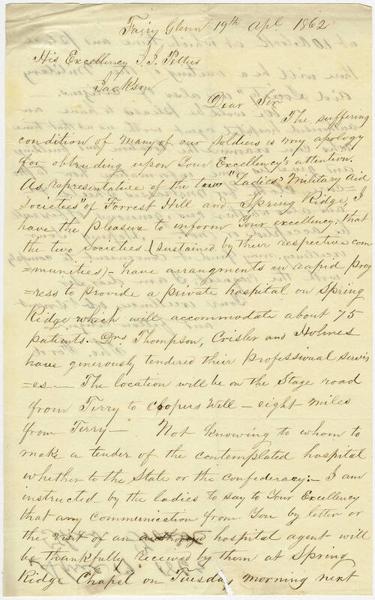 Fairy Glenn 19th Apl 1862
His Excellency J. J. Pettus
Jackson
Dear Sir
The suffering
condition of many of our soldiers is my apology
for obtruding upon Your Excellency's attention.
As representative of the two "Ladies' Military Aid
Societies" of Forrest Hill and Spring Ridge, I
have the pleasure to inform Your excellency, that
the two Societies (sustained by their respective com
=munities) - have arrangments in rapid prog
=ress to provide a private hospital on Spring
Ridge which will accommodate about 75
patients. Drs Thompson, Crisler and Holmes
have generously tendered their professional servic
=es — The location will be on the Stage road
from Terry to Coopers Well — eight miles
from Terry — Not knowing to whom to
make a tender of the contemplated hospital
whether to the State or the Confederacy. - I am
instructed by the ladies to say to Your Excellency
that any communication from You by letter or
the visit of an hospital agent will
be thankfully received by them at Spring
Ridge Chapel on Tuesday morning next